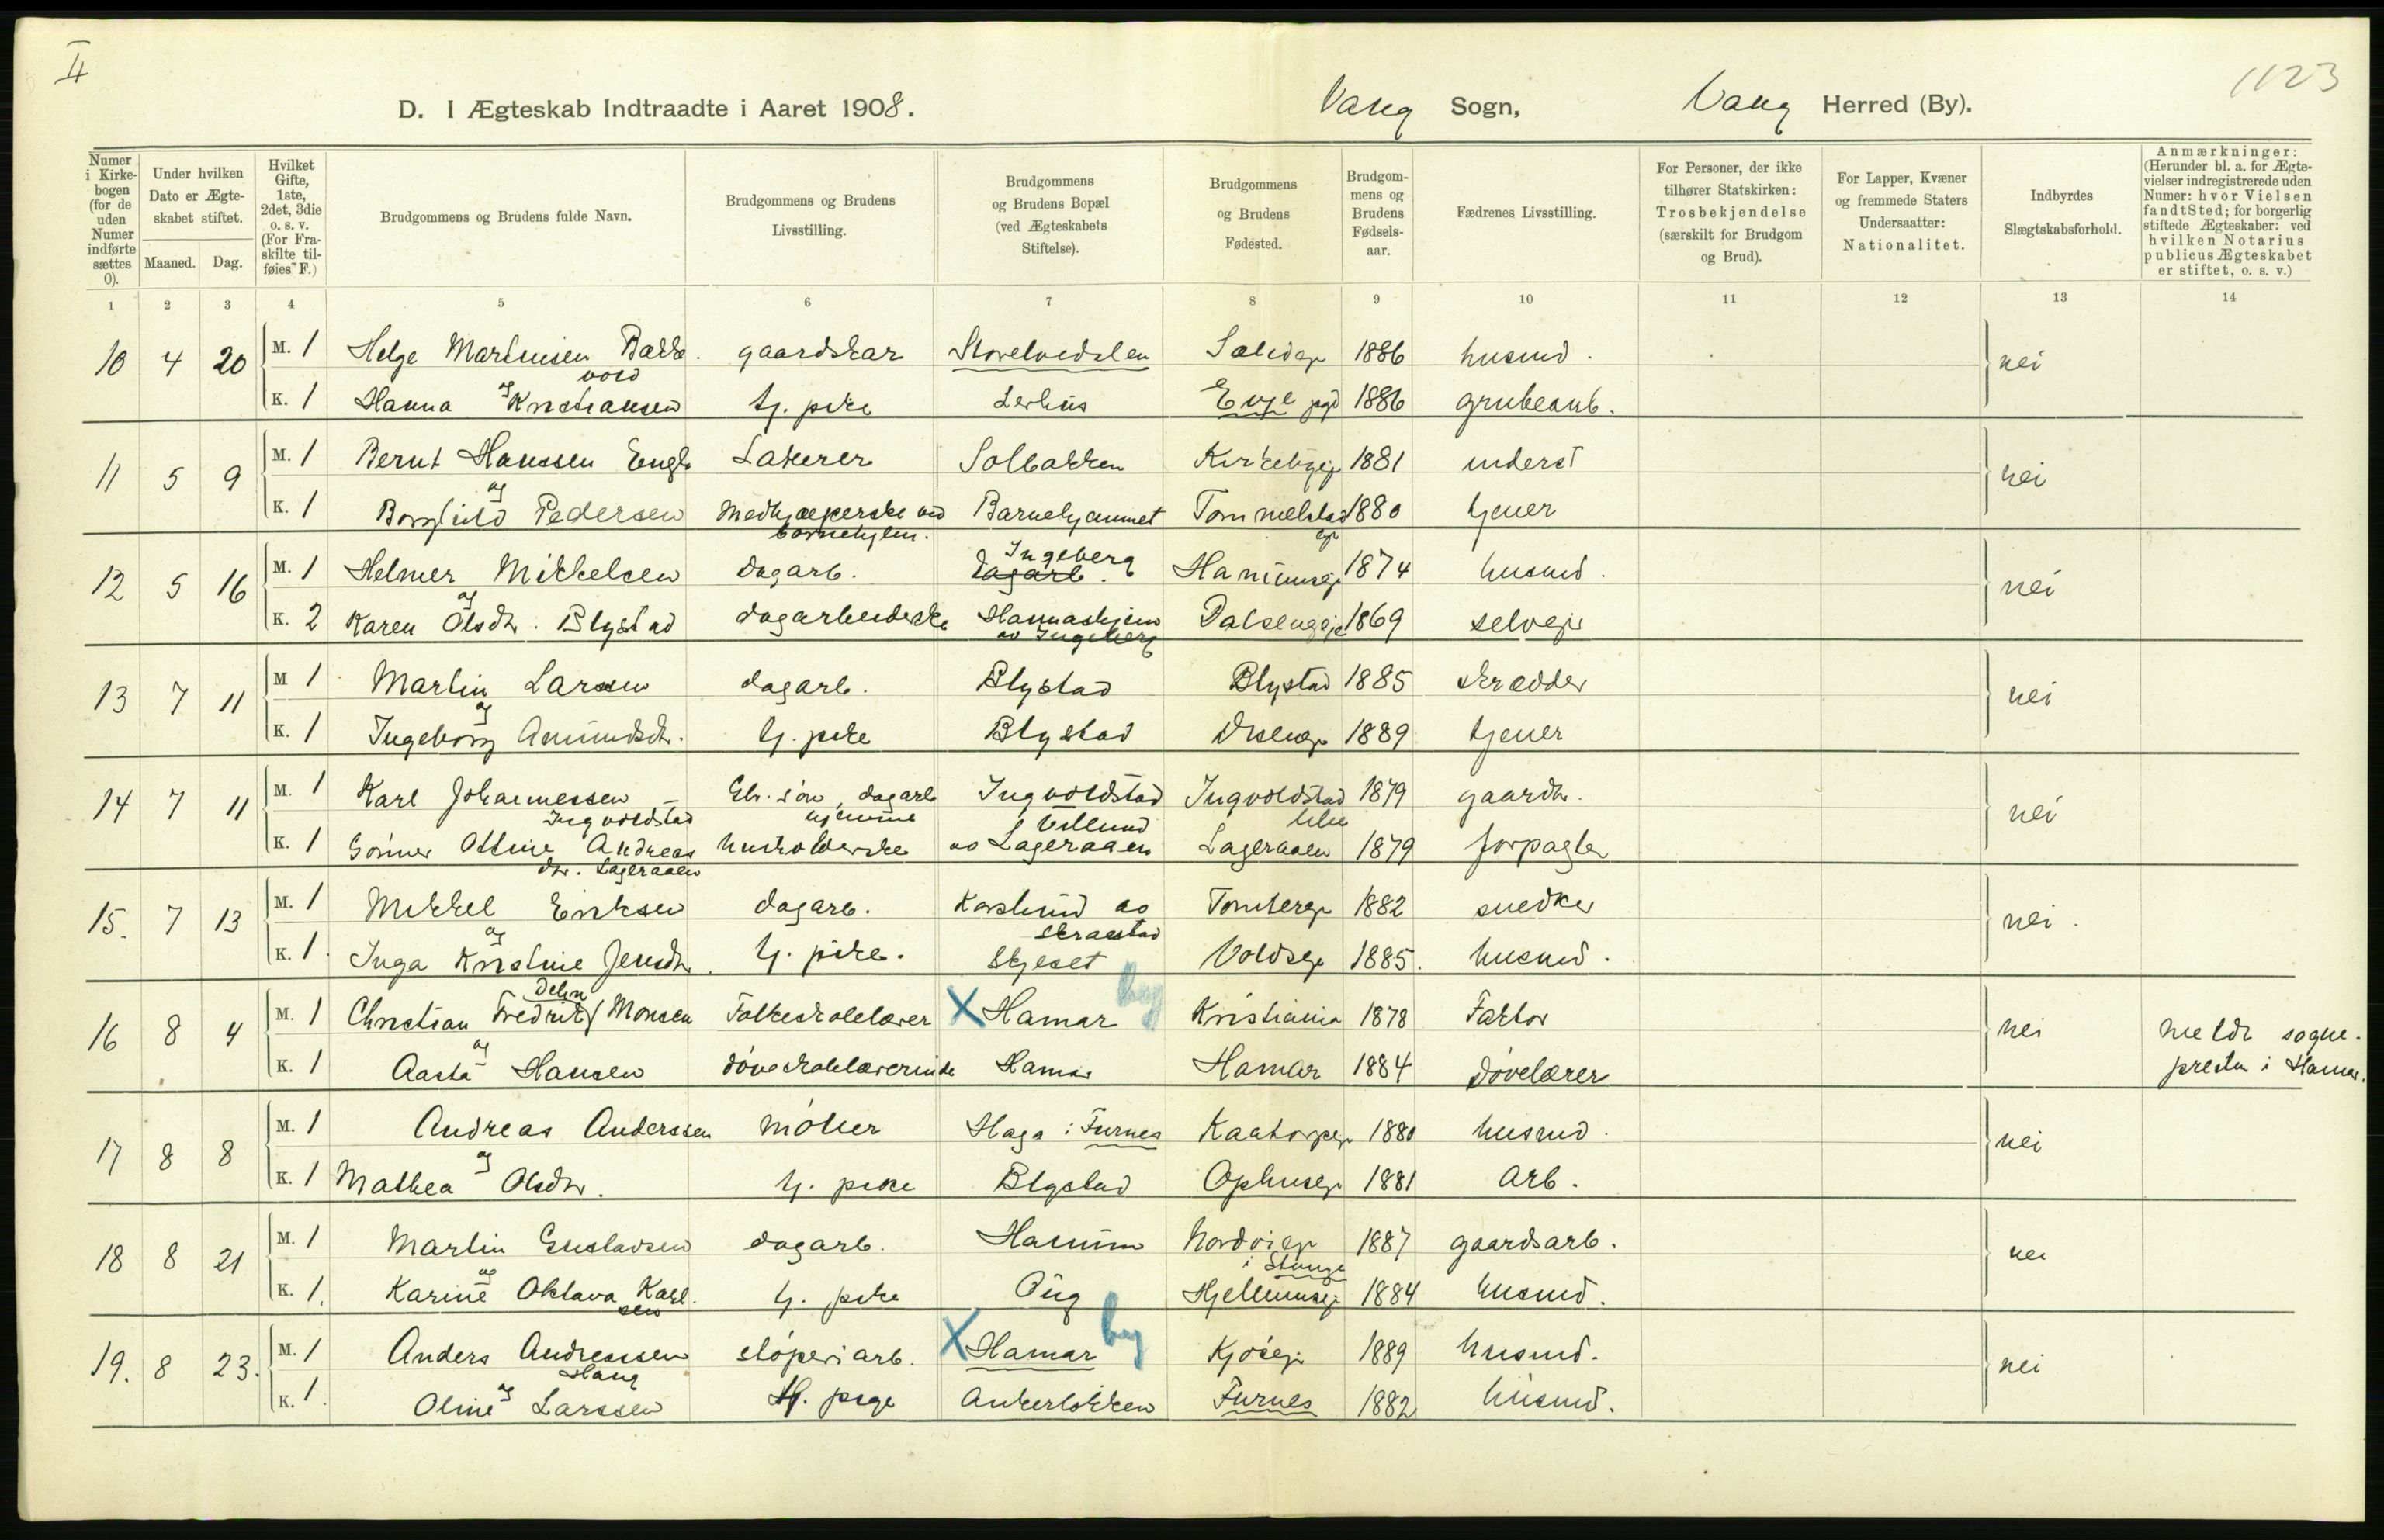 II
1123
D. I Ægteskab Indtraadte i Aaret 1908. Vang Sogn, Vang Herred (By).
Numer i Kirkebogen (for de uden Numer indførte sættes 0).
Under hvilken Dato er Ægteskabet stiftet.
Maaned. Dag.
Hvilket Gifte, 1ste, 2det, 3die o. s. v. (For Fraskilte tilføies F.)
Brudgommens og Brudens fulde Navn.
Brudgommens og Brudens Livsstilling.
Brudgommens og Brudens Bopæl (ved Ægteskabets Stiftelse).
Brudgommens og Brudens Fødested.
Brudgommens og Brudens Fødselsaar.
Fædrenes Livsstilling.
For Personer, der ikke tilhører Statskirken: Trosbekjendelse (særskilt for Brudgom og Brud).
For Lapper, Kvæner og fremmede Staters Undersaatter: Nationalitet.
Indbyrdes Slægtskabsforhold.
Anmærkninger: (Herunder bl. a. for Ægtevielser indregistrerede uden Numer: hvor Vielsen fandt Sted; for borgerlig stiftede Ægteskaber: ved hvilken Notarius publicus Ægteskabet er stiftet, o. s. v.)
1 2 3 4 5 6 7 8 9 10 11 12 13 14
10 4 20 M. 1 Helge Martinsen Bakke vold gaardskar 1886 husmd. nei
K. 1 og Hanna Kristiansen tj. pike Lerhus 1886 grubearb.
11 5 9 M. 1 Bernt Hanssen Engh Lakerer Solbakken 1881 inderst nei
K. 1 og Borghild Pedersen Medhjælperske ved barnehjem. Barnehjemmet Tommelstad eje 1880 tjener
12 5 16 M. 1 Helmer Mikkelsen dagarb. Ingeberg 1874 husmd. nei
K. 2 og Karen Olsdtr. Blystad dagarbeiderske 1869 selvejer
13 7 11 M 1 Martin Larsen dagarb. Blystad Blystad 1885 skrædder nei
K. 1 og Ingeborg Amundsdtr. tj. pike Blystad 1889 tjener
14 7 11 M. 1 Karl Johannessen Ingvoldstad dagarb hjemme Ingvoldstad Ingvoldstad lille 1879 gaardbr. nei
K. 1 Ottine Andreasdtr. Lageraaen husholderske Lageraaen Lageraaen 1879 forpagter
15. 7 13 M. 1 Mikkel Eriksen dagarb. Karslund ao Skraastad 1882 snedker nei.
K. 1. og Inga Kristine Jensdtr. tj. pike. Skjeset Voldseje 1885. husmd.
16 8 4 M. 1 Christian Fredrik Monsen Folkeskolelærer X Hamar by Kristiania 1878 Faktor nei meldt sogne-
K. 1 og Aasta Hansen døveskolelærerinde Hamar Hamar 1884 døvelærer presten i Hamar.
17 8 8 M. 1 Andreas Anderssen møller Haga i Furnes 1880 husmd. nei
K. 1 og Mathea Olsdtr. tj. pike Blystad Ophuseje 1881 arb.
18 8 21 M. 1 Martin Gustavsen dagarb. Hamum Nordvieje i Stange 1887 gaardsarb. nei
K. 1. og Karine Oktava Karlsen tj. pike Hjellumseje 1884 husmd.
19. 8 23. M. 1 Anders Andreassen Haug støperiarb. X Hamar by 1889 husmd. nei
K. 1. og Oline Larssen tj. pige Ankerløkken Furnes 1882 husmd.